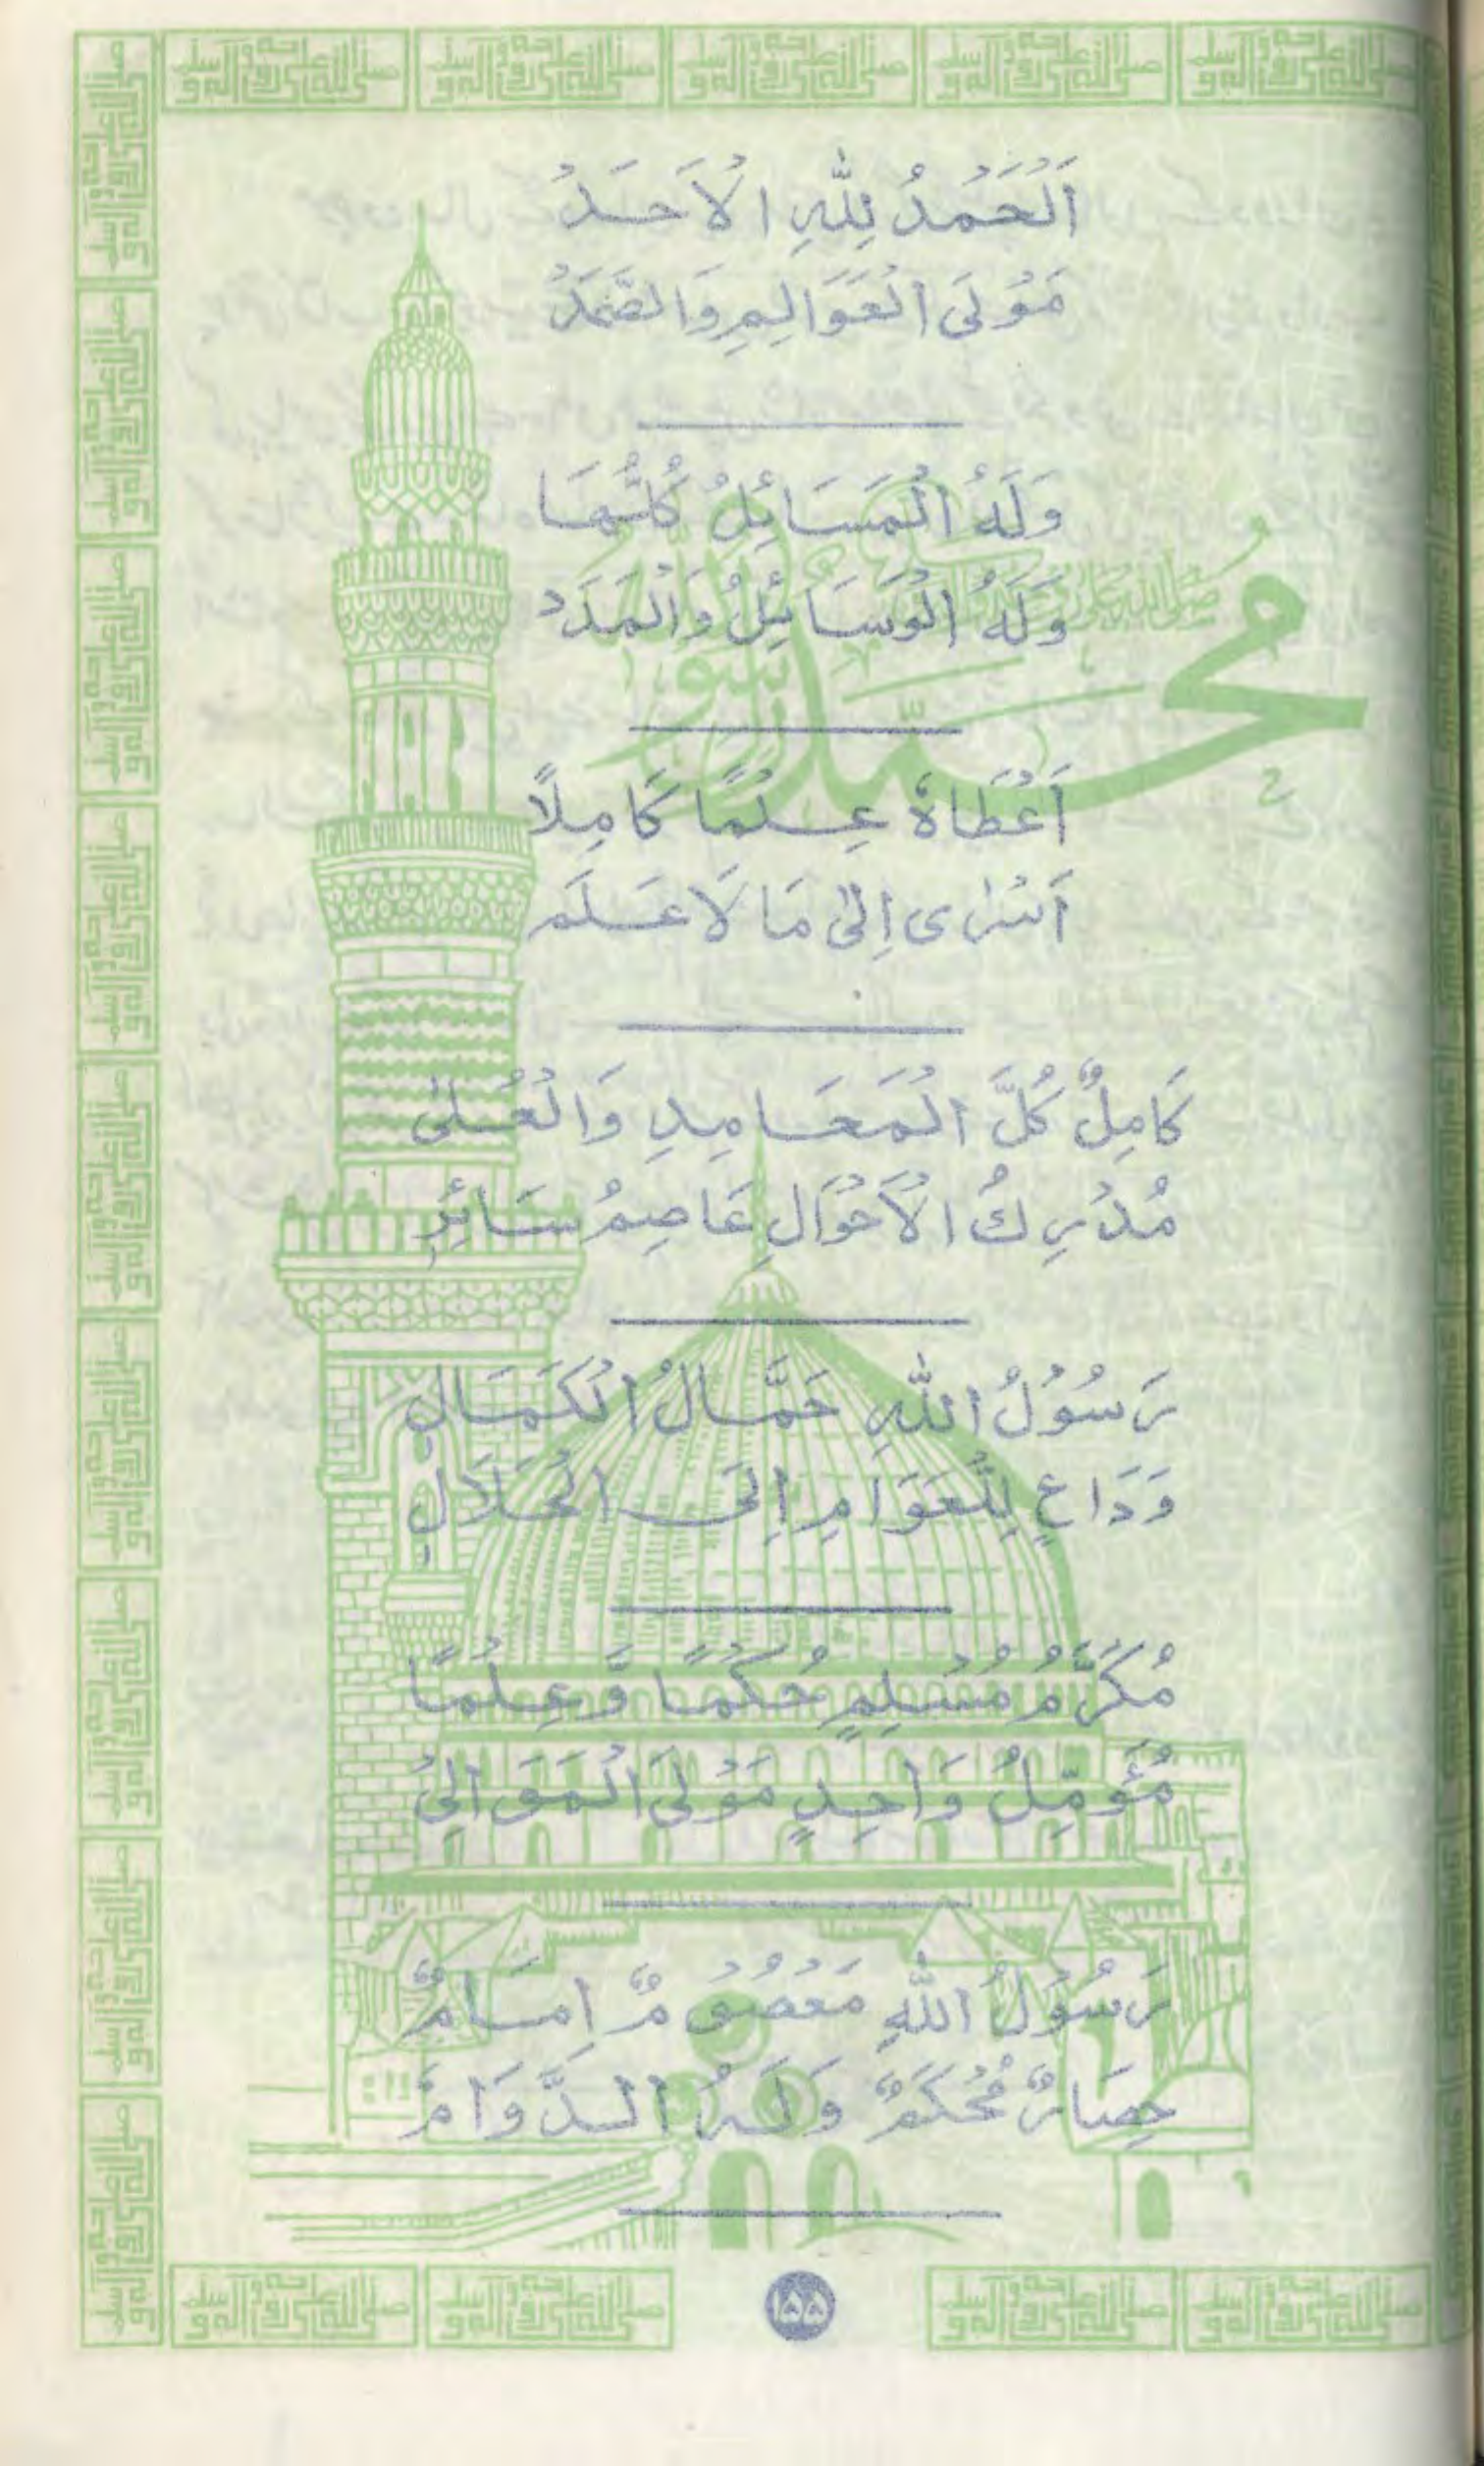 اَلْحَمْدُ لِلّٰهِ الْاَحَدْ
مَوْلَى الْعَوَالِمِ وَالصَّمَدْ
وَلَهُ الْمَسَائِلُ كُلُّهَا
وَلَهُ الْوَسَائِلُ وَالْمَدَدْ
اَعْطَاهُ عِلْمًا كَامِلًا
اَسْرٰى اِلٰى مَا لَا عَلَم
كَامِلٌ كُلَّ الْمَحَامِدِ وَالْعُلٰى
مُدْرِكُ الْاَحْوَالِ عَاصِمُ سَائِرِ
رَسُوْلُ اللّٰهِ حَمَّالُ الْكَمَالِ
وَدَاعٍ لِلْعَوَامِ اِلَى الْحَلَالِ
مُكَرَّمُ مُسْلِمٍ حُكْمًا وَّعِلْمًا
مُؤَمِّلُ وَاحِدٍ مَوْلَى الْمَوَالِيْ
رَسُوْلُ اللّٰهِ مَعْصُوْمٌ اِمَامٌ
حِصَارٌ مُحْكَمٌ وَلَهُ الدَّوَامُ
محمد
صلى الله عليه
رسول
۱۵۵